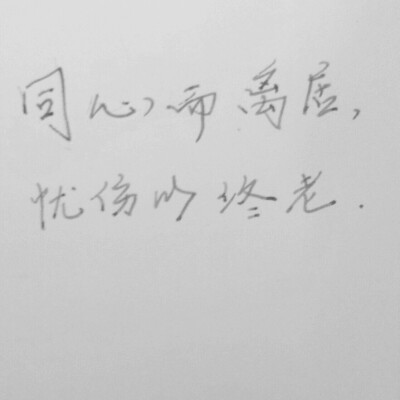 同心而离居,
忧伤以终老.